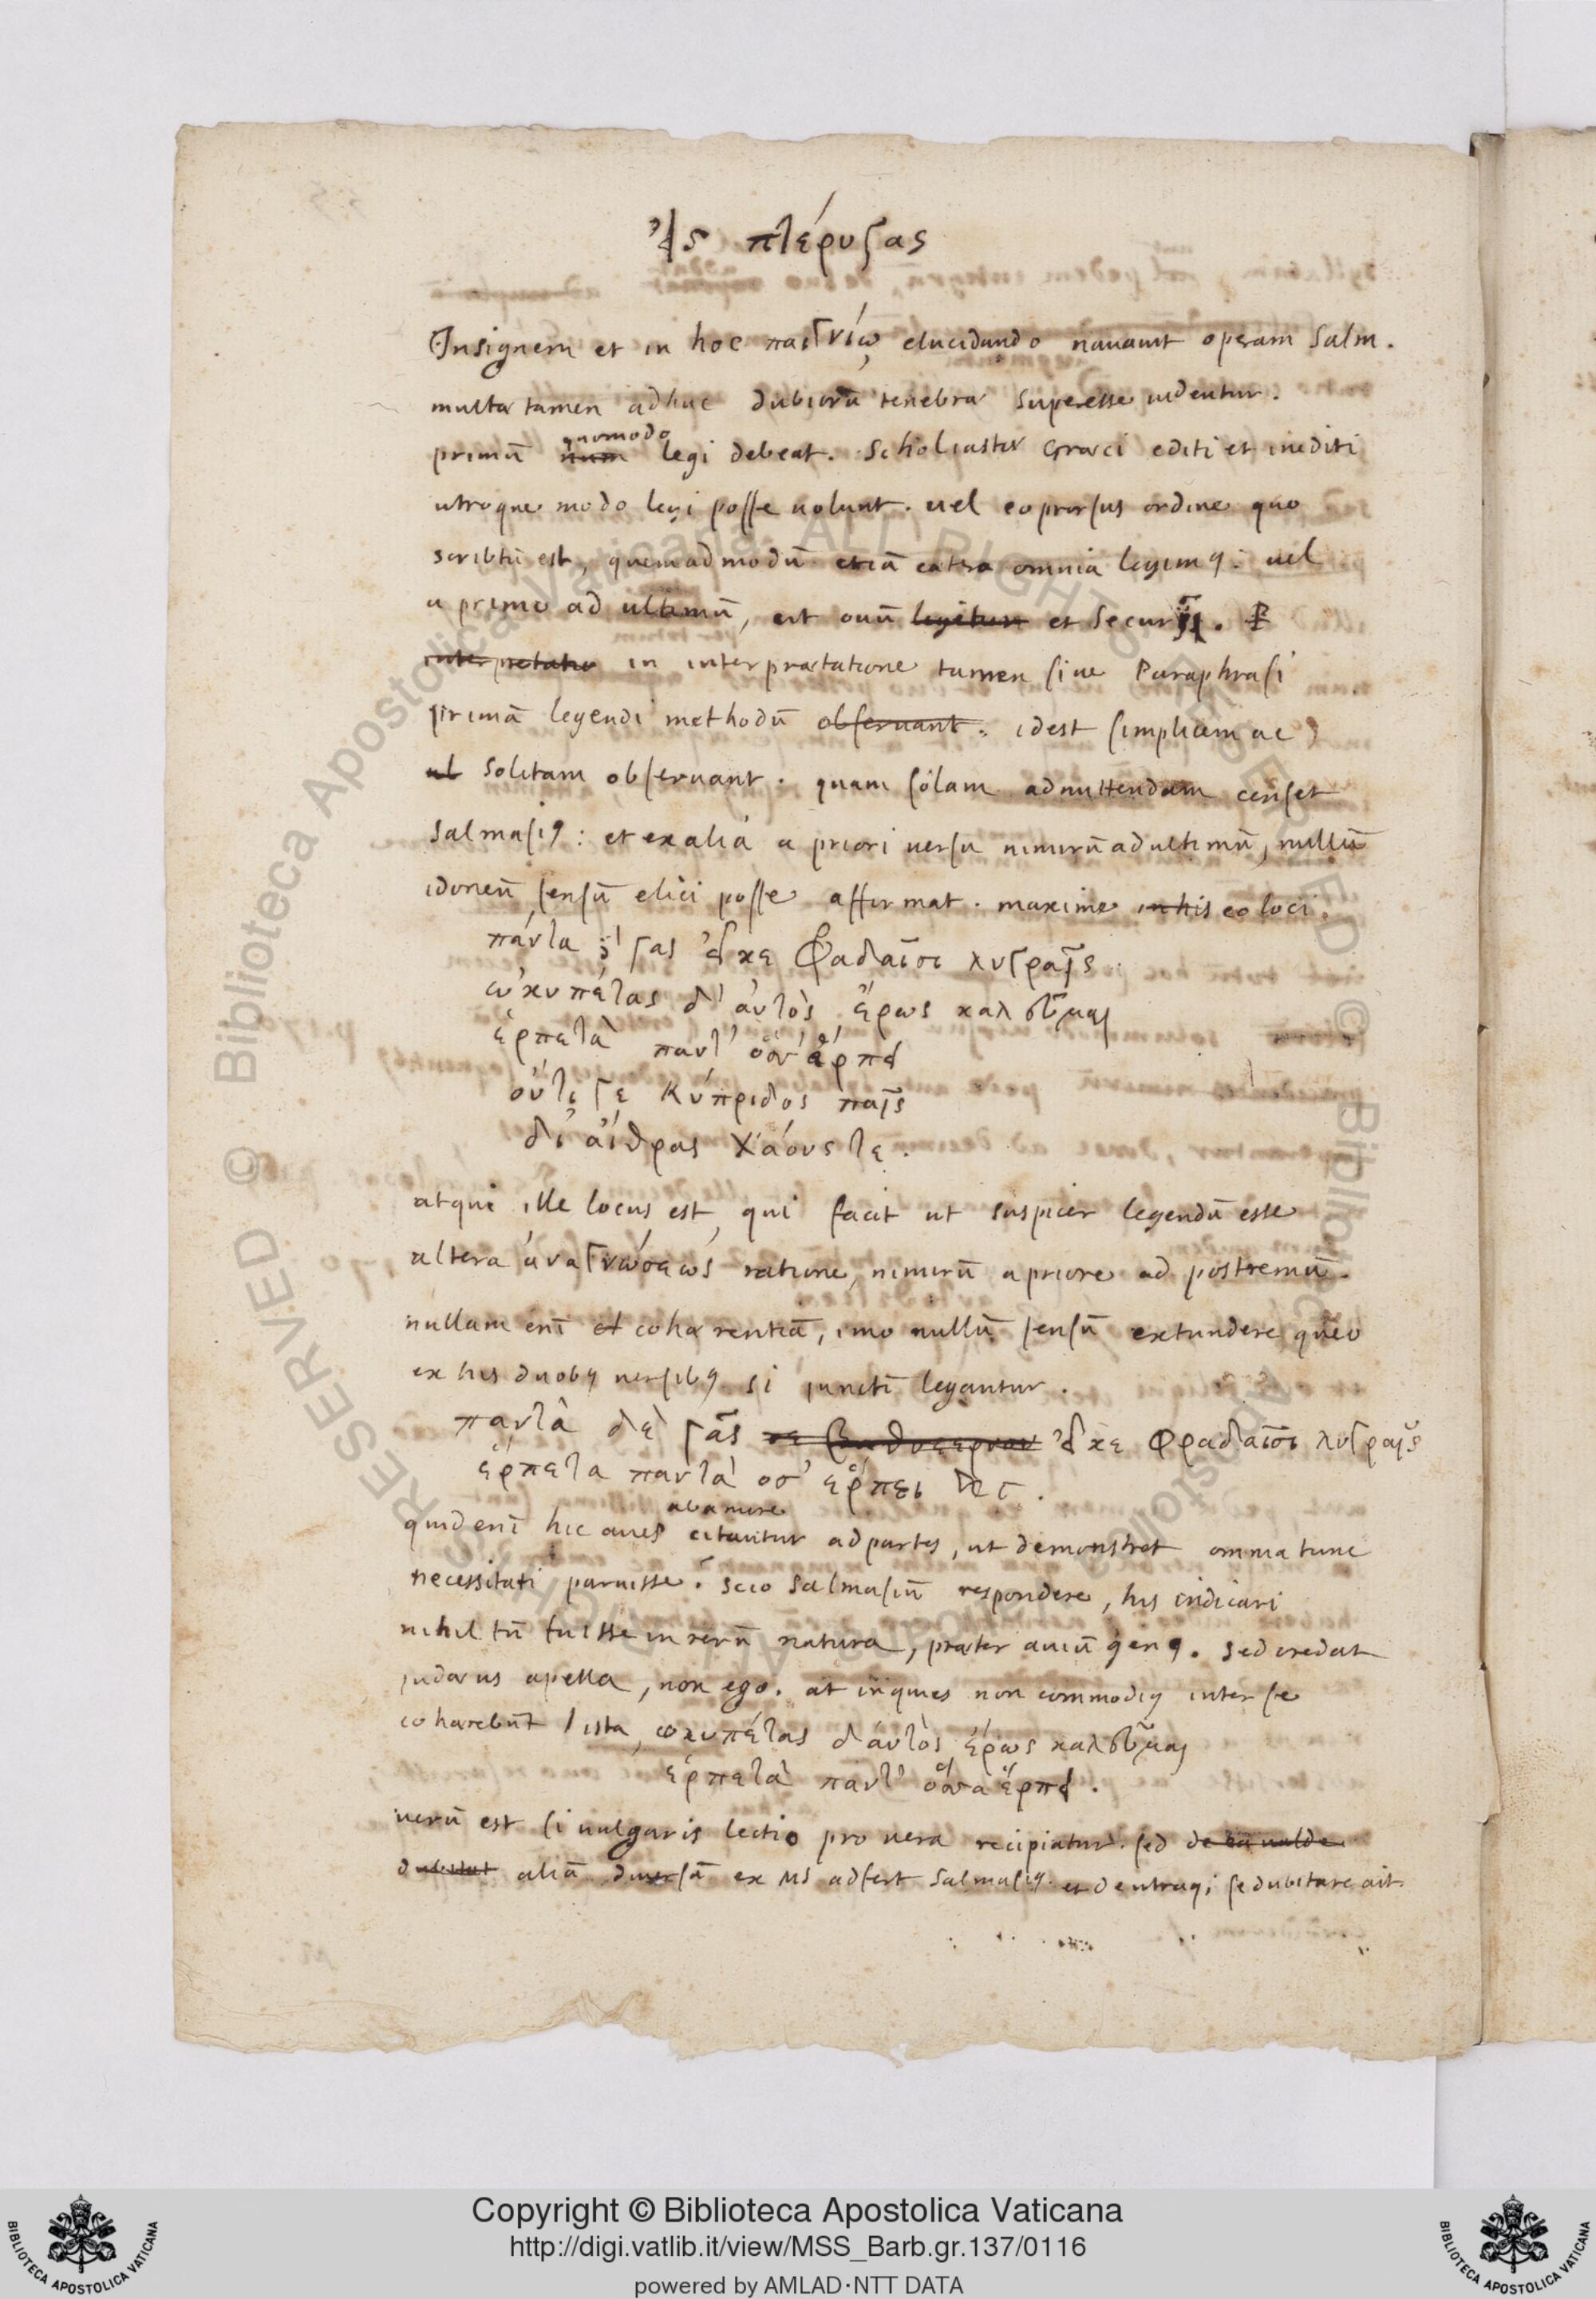 εἰς πτέρυγας
Insignem et in hoc παιγνίῳ elucidando nauauit operam Salm.
multa tamen adhuc dubiorũ tenebra superesse uidentur.
primũ num quomodo legi debeat. Scholiaster Graeci editi et inediti
utroque modo legi posse uolunt. uel eo prorsus ordine quo
scribtũ est, quemadmodũ etiã catera omnia legimꝰ. uel
a primo ad ultimũ, ut ouũ legitur et Secur
interpretatio in interpraetatione tamen siue Paraphrasi
primã legendi methodũ obseruant. idest simplicem ac
ul solitam obseruant. quam solam admittendam censet
Salmasiꝰ: et ex aliâ a priori uersu nimirũ ad ultimũ, nullũ
idoneũ sensũ elici posse affirmat. maxime in his eo loci.
πάντα δὲ γας εἶκε Φραδαῖσι λυγραῖς.
ὠκυπέτας δ' ἀυτὸς ἔρως καλοῦμαι
ἑρπετὰ παντ' ὅσ' ἕρπει
οὔτι γε Κύπριδος παῖς
δι' αἴθρας Χάους τε.
atqui ille locus est, qui facit ut suspicer legendũ esse
altera ἀναγνώσεως ratione, nimirũ a priore ad postremũ.
nullam enĩ et cohaerentiã, imo nullũ sensũ extundere queo
ex his duobꝰ uersibꝰ si junctĩ legantur.
παντὰ δὲ γᾶς εἶκε Φραδαῖσι λυγραῖς
ἑρπετα παντὰ οσ' ἕρπει &c.
quid enĩ hic aues citantur ad partes, ut demonstret omnia tunc
necessitati paruisse. scio Salmasiũ respondere, his indicari
nihil tũ fuisse in rerũ natura, praeter auiũ genꝰ. sed credat
judaeus apella, non ego. at inquies non commodiꝰ inter se
cohaerebũt ista, ωκυπέτας δ' ἀυτὸς ἔρως καλοῦμαι
ἑρπετὰ παντ' ὅσα ἕρπει.
uerũ est si uulgaris lectio pro uera recipiatur. sed de ea ualde
dubitat aliã diuersã ex MS adfert Salmasiꝰ. et de utraqꝫ se dubitare ait.
© Biblioteca Apostolica Vaticana ALL RIGHTS RESERVED
Copyright © Biblioteca Apostolica Vaticana
http://digi.vatlib.it/view/MSS_Barb.gr.137/0116
powered by AMLAD·NTT DATA
BIBLIOTECA APOSTOLICA VATICANA
BIBLIOTECA APOSTOLICA VATICANA